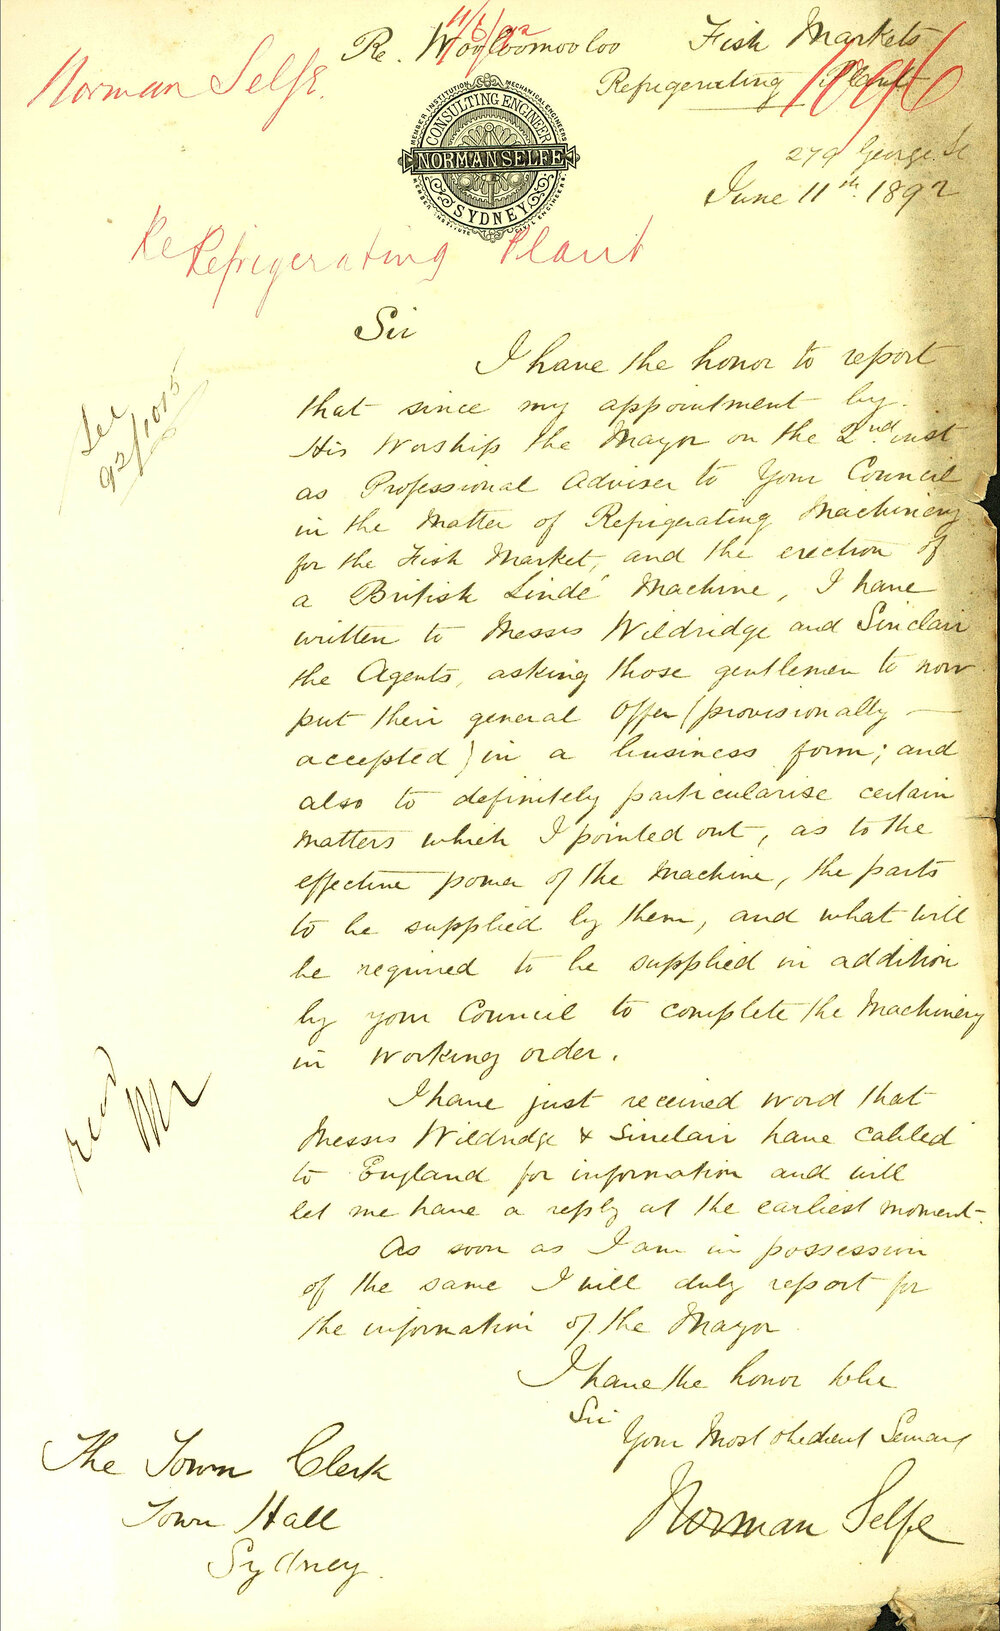 11/6/92
Re. Woolloomooloo Fish Markets
Norman Selfe.
Refrigerating Plant
1096
MEMBER INSTITUTION MECHANICAL ENGINEERS
CONSULTING ENGINEER
NORMAN SELFE
SYDNEY
MEMBER INSTITUTE CIVIL ENGINEERS
279 George St
June 11th 1892
Re Refrigerating Plant
Sir
I have the honor to report
that since my appointment by
His Worship the Mayor on the 2nd inst
as Professional Adviser to Your Council
in the Matter of Refrigerating Machinery
for the Fish Market, and the erection of
a British Lindé Machine, I have
written to Messrs Wildridge and Sinclair
the Agents, asking those gentlemen to now
put their general Offer (provisionally —
accepted) in a business form; and
also to definitely particularise certain
Matters which I pointed out, as to the
effective power of the Machine, the parts
to be supplied by them, and what will
be required to be supplied in addition
by your Council to complete the Machinery
in working order.
I have just received word that
Messrs Wildridge & Sinclair have cabled
to England for information and will
let me have a reply at the earliest moment.
As soon as I am in possession
of the same I will duly report for
the information of the Mayor
I have the honor to be
Sir
Your Most obedient Servant
Norman Selfe
The Town Clerk
Town Hall
Sydney.
See
92/1015